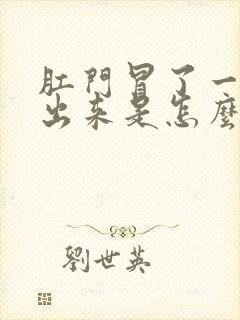 肛門冒了一
出来是怎麼
劉世英